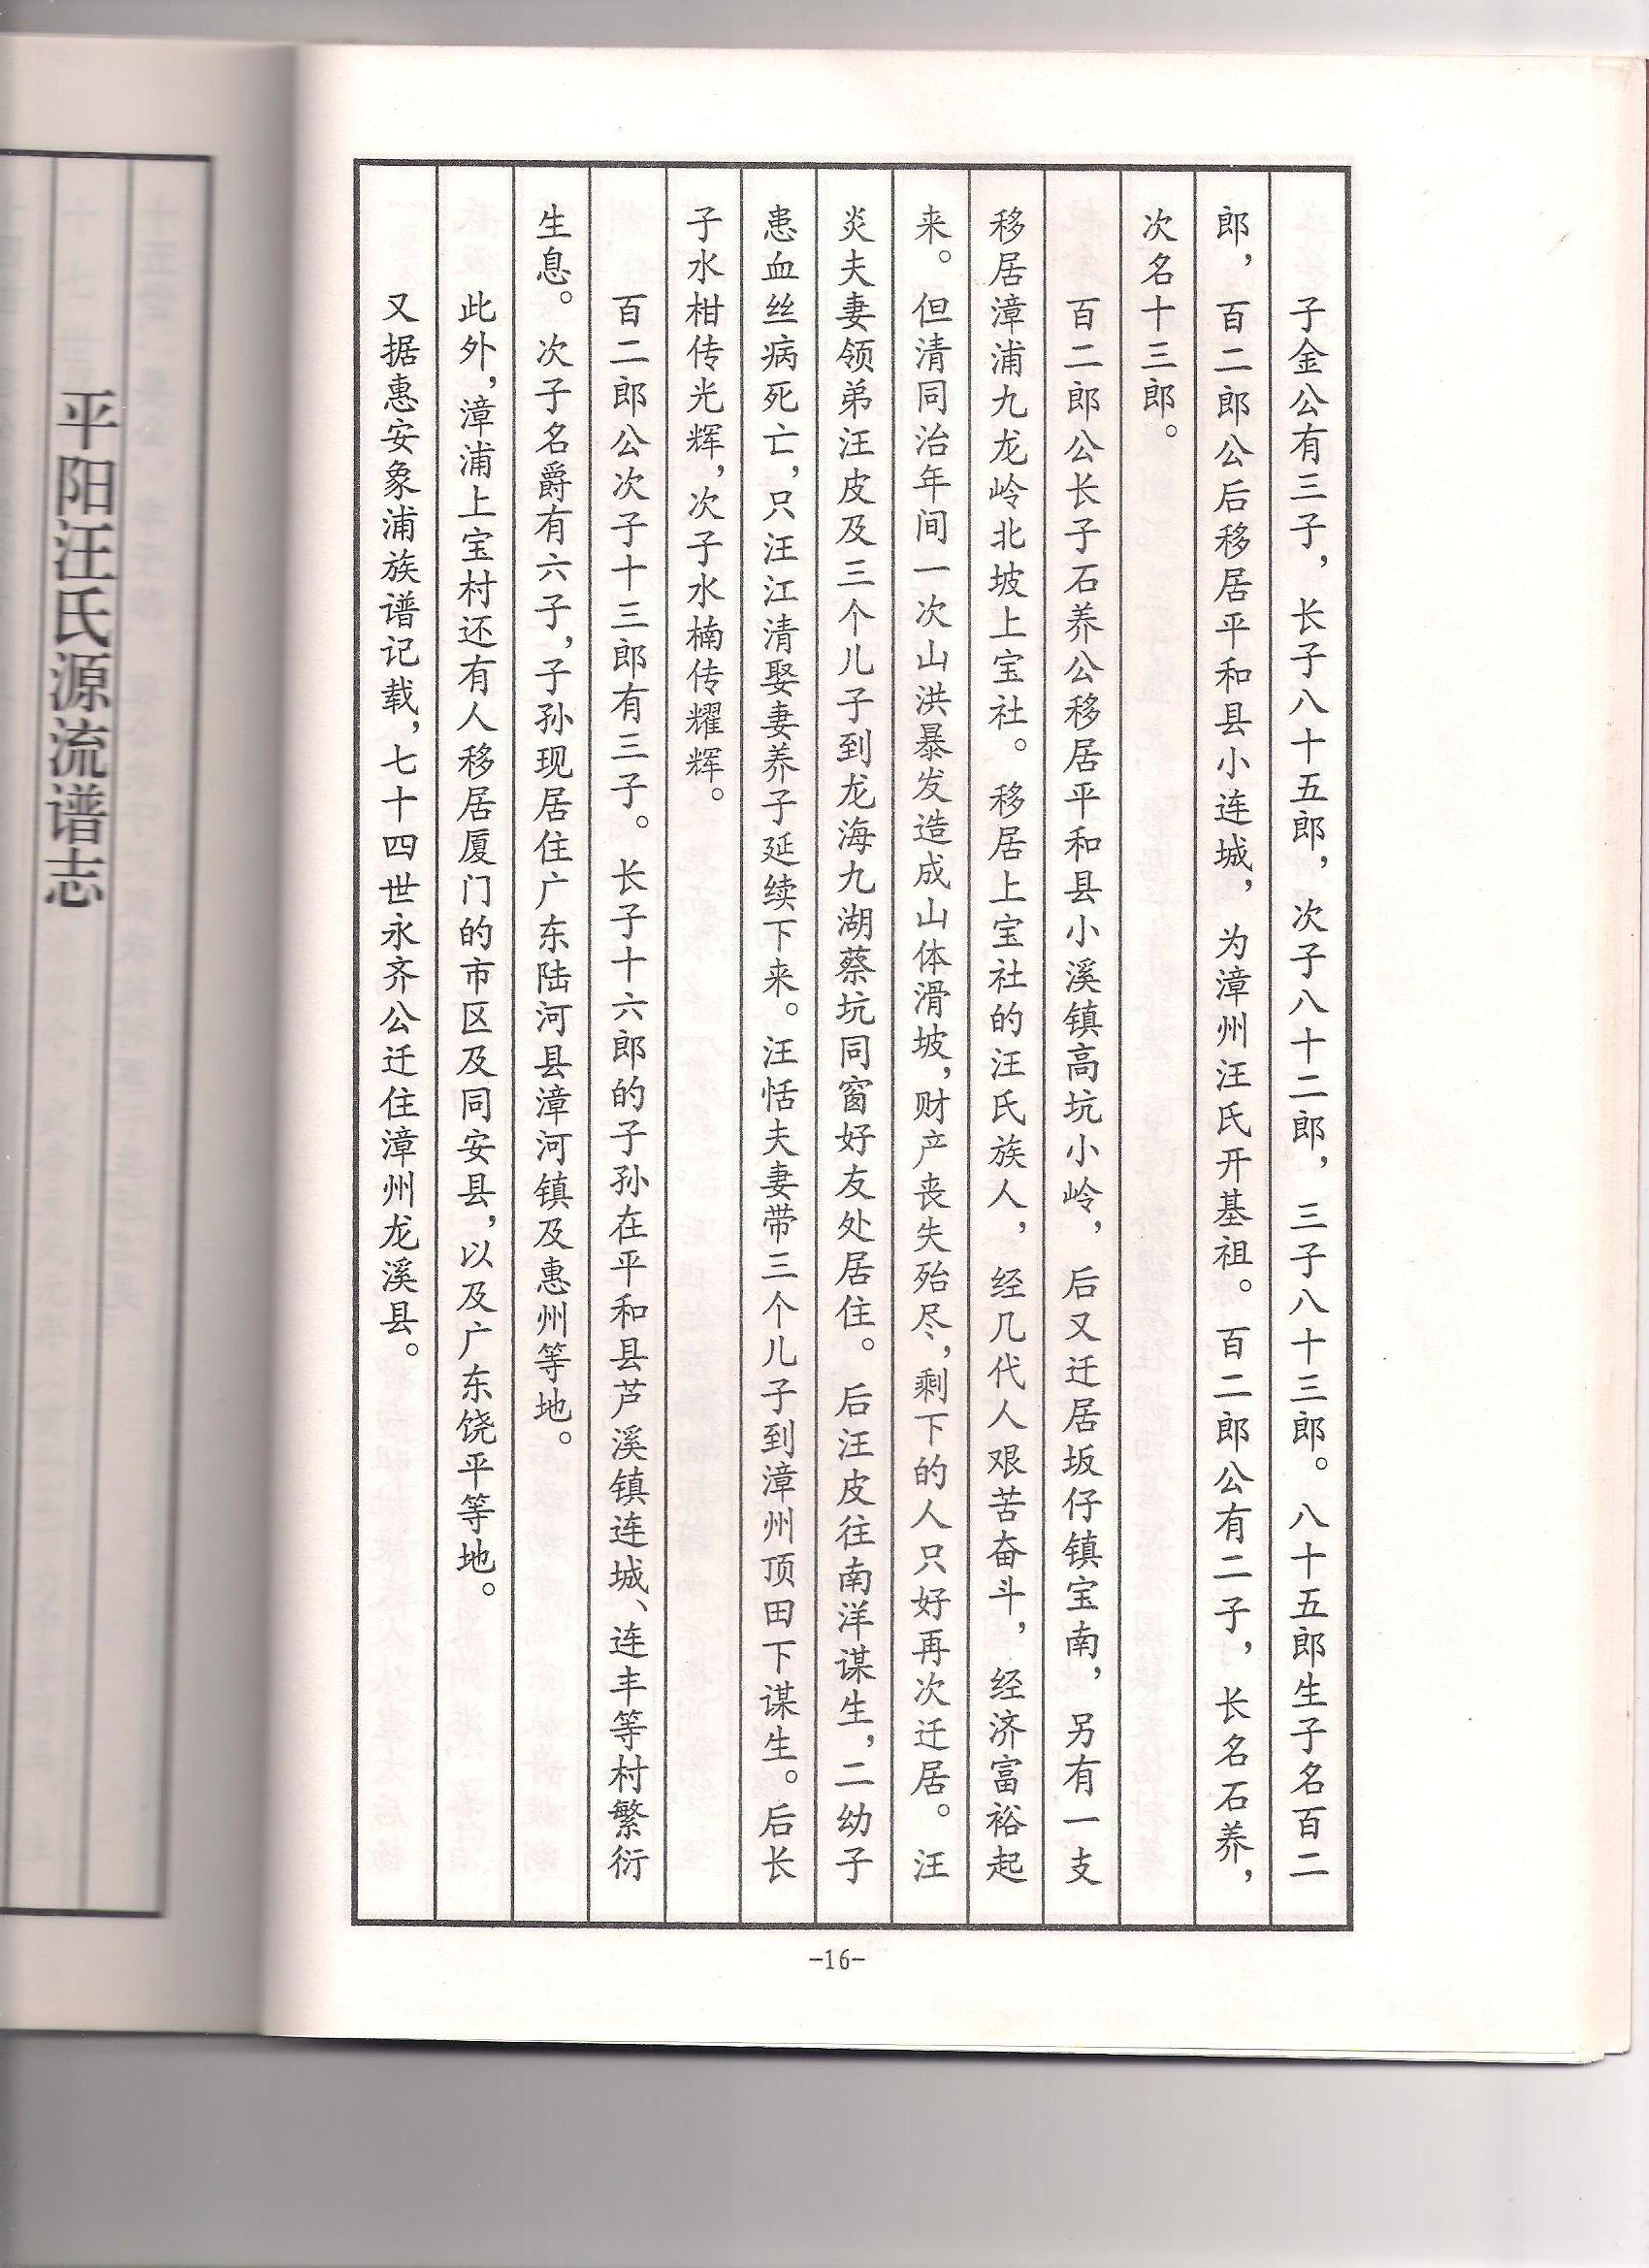 子金公有三子，长子八十五郎，次子八十二郎，三子八十三郎。八十五郎生子名百二
郎，百二郎公后移居平和县小连城，为漳州汪氏开基祖。百二郎公有二子，长名石养，
次名十三郎。
百二郎公长子石养公移居平和县小溪镇高坑小岭，后又迁居坂仔镇宝南，另有一支
移居漳浦九龙岭北坡上宝社。移居上宝社的汪氏族人，经几代人艰苦奋斗，经济富裕起
来。但清同治年间一次山洪暴发造成山体滑坡，财产丧失殆尽，剩下的人只好再次迁居。汪
炎夫妻领弟汪皮及三个儿子到龙海九湖蔡坑同窗好友处居住。后汪皮往南洋谋生，二幼子
患血丝病死亡，只汪江清娶妻养子延续下来。汪恬夫妻带三个儿子到漳州顶田下谋生。后长
子水柑传光辉，次子水楠传耀辉。
百二郎公次子十三郎有三子。长子十六郎的子孙在平和县芦溪镇连城、连丰等村繁衍
生息。次子名爵有六子，子孙现居住广东陆河县漳河镇及惠州等地。
此外，漳浦上宝村还有人移居厦门的市区及同安县，以及广东饶平等地。
又据惠安象浦族谱记载，七十四世永齐公迁住漳州龙溪县。
-16-
平阳汪氏源流谱志